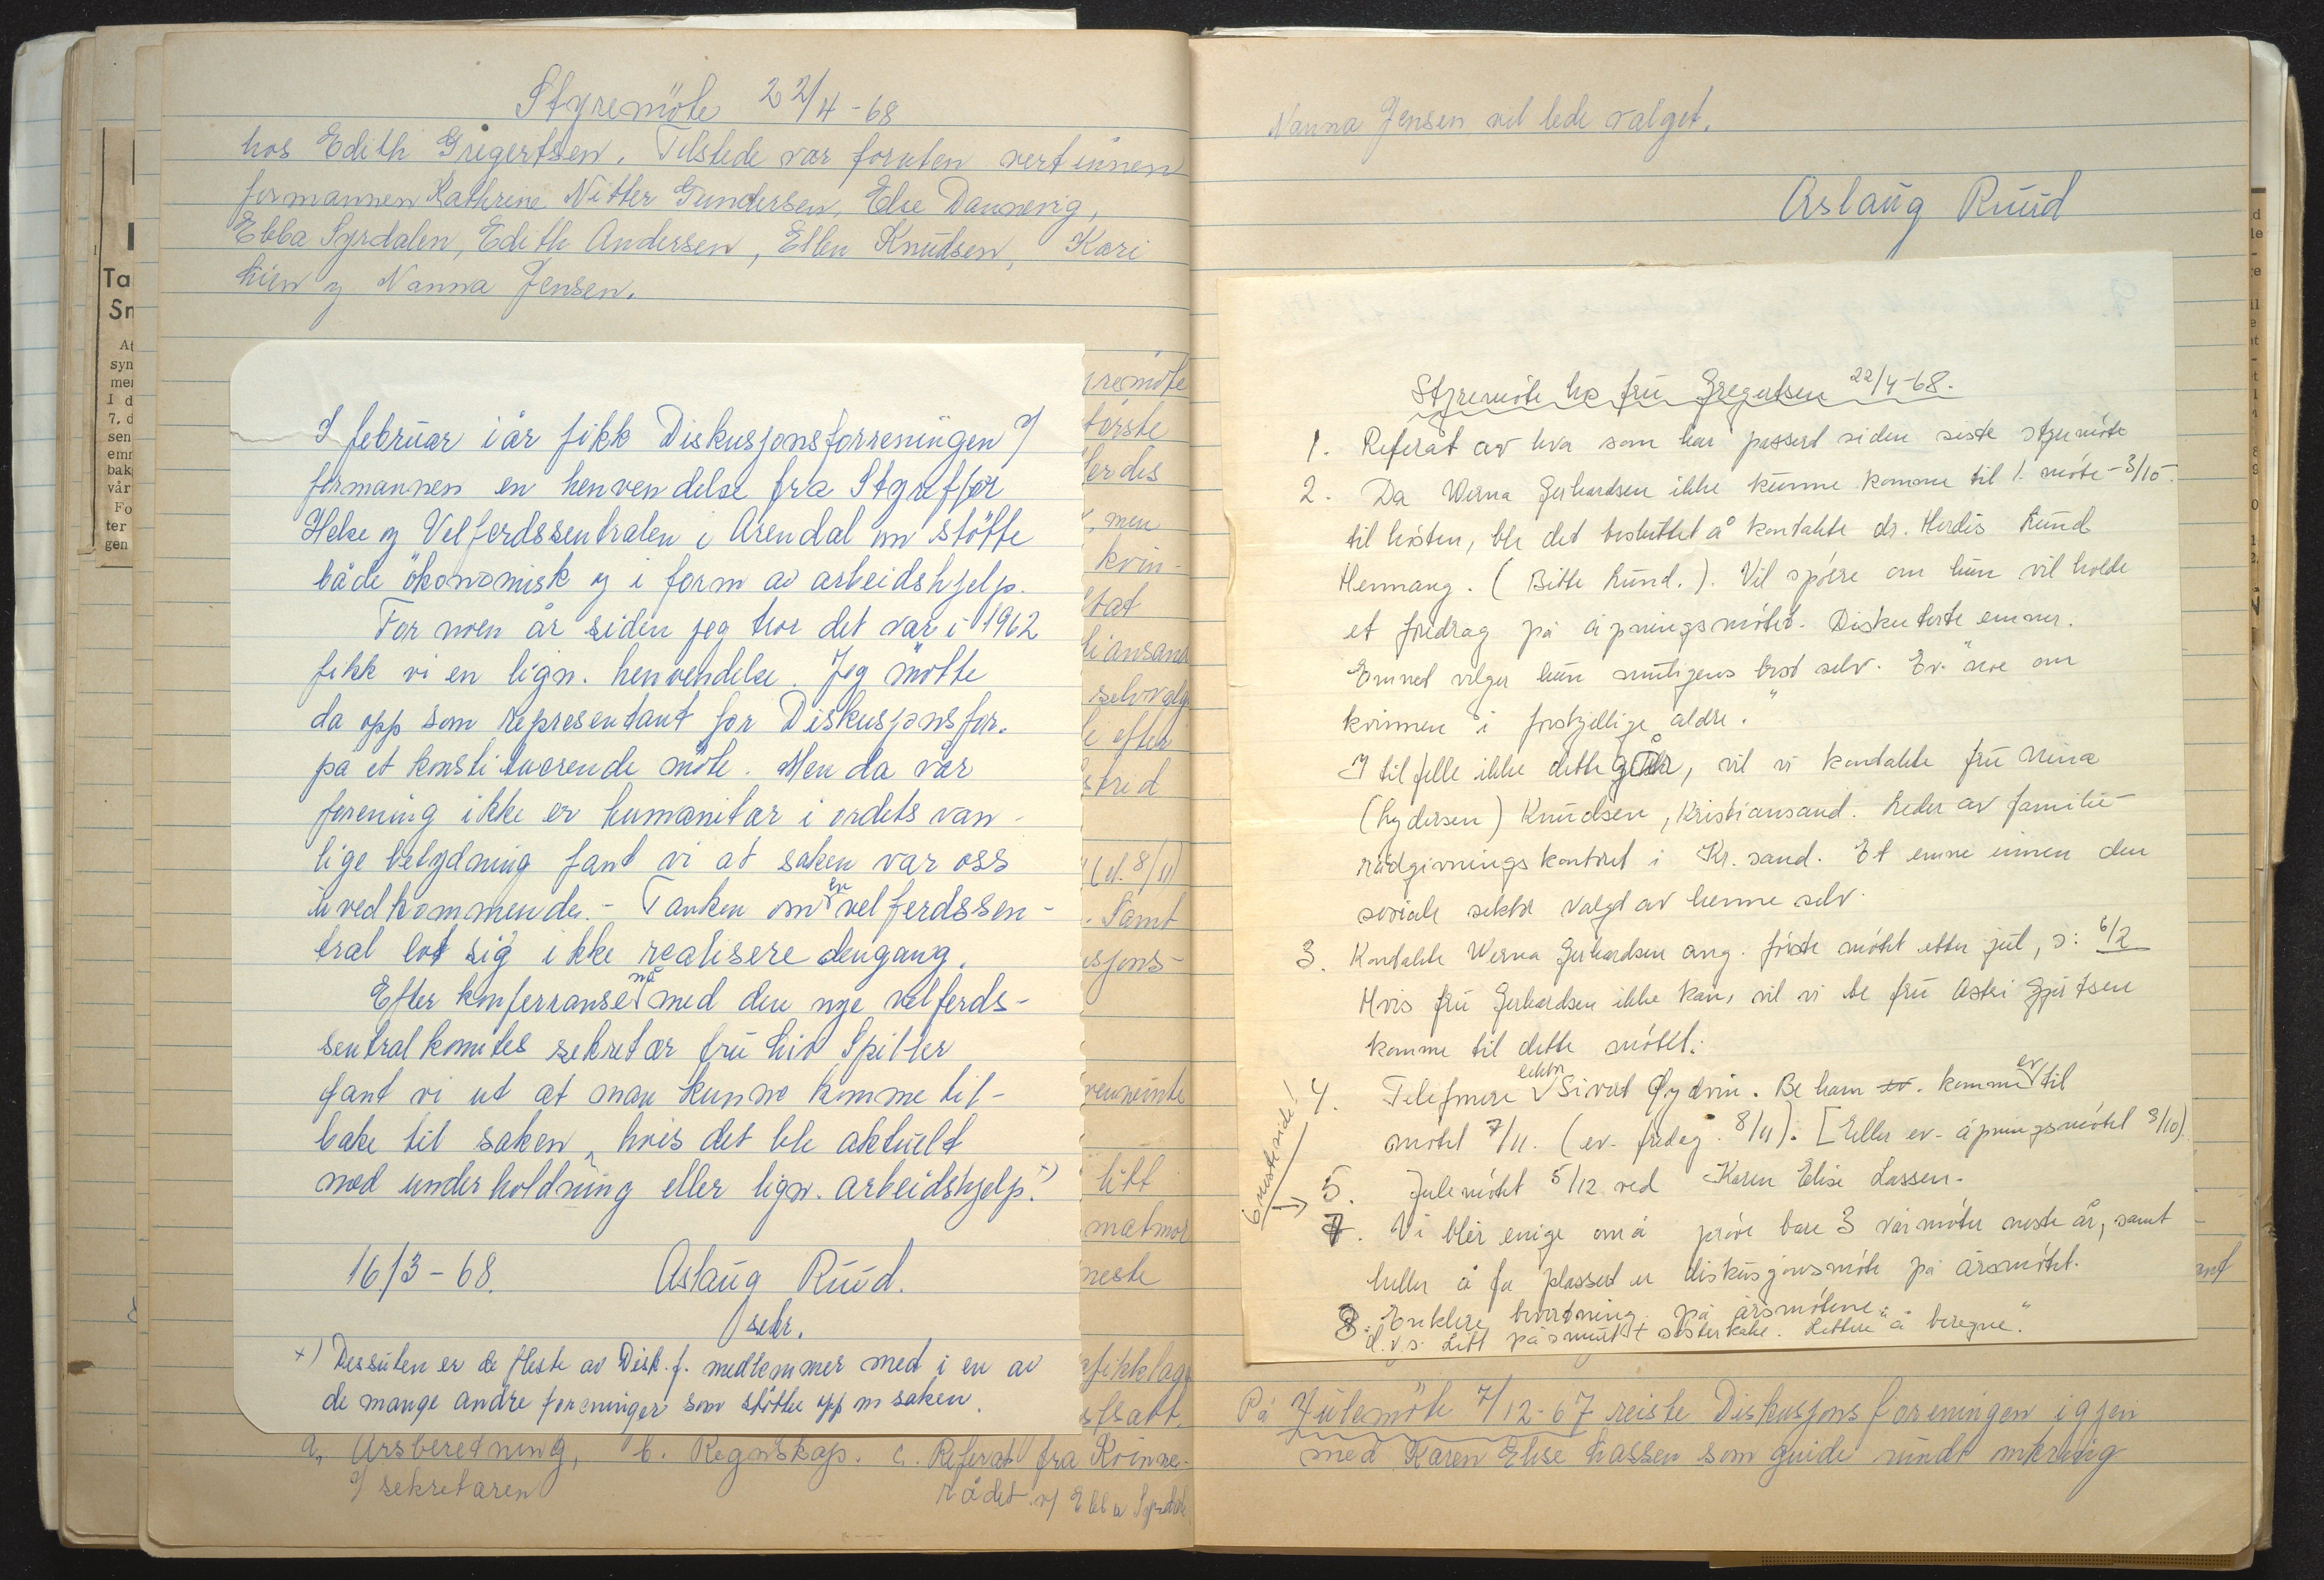 Styremöte 22/4-68
hos Edith Gregertsen. Tilstede var foruten vertinnen
formannen Kathrine Nitter Gundersen, Else Dannevig,
Ebba Syrdalen, Edith Andersen, Ellen Knudsen, Kari
Lien og Nanna Jensen.
I februar i år fikk Diskusjonsforreningen v/
formannen en henvendelse fra Styret for
Helse og Velferdssentralen i Arendal om støtte
både økonomisk og i form av arbeidshjelp.
For noen år siden jeg tror det var i 1962
fikk vi en lign. henvendelse. Jeg møtte
da opp som representant for Diskusjonsfor.
på et konstituerende möte. Men da vår
forening ikke er humanitær i ordets van-
lige betydning fant vi at saken var oss
uvedkommende. - Tanken om en velferdssen-
tral lot sig ikke realisere dengang.
Efter konferranse nå med den nye velferds-
sentralkomités sekretær fru Liv Spiller
fant vi ut at man kunne komme til-
bake til saken, hvis det ble aktuelt
med underholdning eller lign. arbeidshjelp. x)
16/3-68. Aslaug Ruud.
sekr.
x) Dessuten er de fleste av Disk.f. medlemmer med i en av
de mange andre foreninger som støtter opp om saken.
remöte
første
lerdes
men
kvin-
tat
tiansand
selvvalg
efter
strid
(el. 8/11)
. Samt
usjons-
litt
matmor
neste
a. Årsberedning, b. Regnskap. c. Referat fra Kvinne-
v/ sekretæren rådet v/ Ebba Syrdal
Nanna Jensen vil lede valget.
Aslaug Ruud
Styremöte hos fru Gregertsen 22/4-68.
1. Referat av hva som har passert siden siste styremöte
2. Da Werna Gerhardsen ikke kunne komme til 1. möte - 3/10
til hösten, ble det besluttet å kontakte dr. Herdis Lund
Hennang. (Bitte Lund.). Vil spörre om hun vil holde
et foredrag på åpningsmötet. Diskuterte emner.
Emnet velger hun muligens best selv. Ev. "noe om
kvinnen i forskjellige aldre."
I tilfelle ikke dette går, vil vi kontakte fru Nina
(Lydersen) Knudsen, Kristiansand. Leder av familie-
rådgivningskontoret i Kr.sand. Et emne innen den
sosiale sektor valgt av henne selv.
3. Kontakte Werna Gerhardsen ang. förste mötet etter jul, o: 6/2
Hvis fru Gerhardsen ikke kan, vil vi be fru Astri Gjertsen
komme til dette mötet.
4. Telefonere lektor Sivert Øydvin. Be ham ev. komme ev til
mötet 7/11. (ev. fredag 8/11). [Eller ev. åpningsmötet 3/10).
6 neste side!
5. Julemötet 5/12 ved Karen Elise Lassen.
7. Vi blir enige om å pröve bare 3 vårmöter neste år, samt
heller å få plassert et diskusjonsmöte på årsmötet.
8. Enklere bevertning på årsmötene:
d.v.s. Litt påsmurt + østerkake. Lettere "å beregne".
På Julemöte 7/12-67 reiste Diskusjonsforeningen igjen
med Karen Elise Lassen som guide rundt omkring